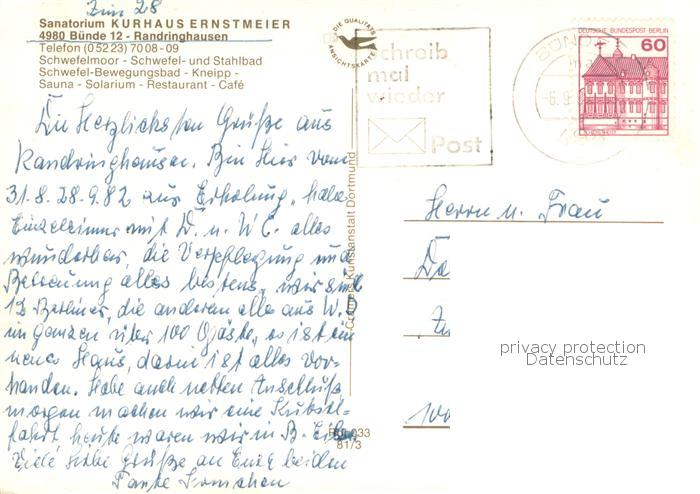 Zim 28
Sanatorium KURHAUS ERNSTMEIER
4980 Bünde 12 - Randringhausen
Telefon (05223) 7008-09
Schwefelmoor - Schwefel- und Stahlbad
Schwefel-Bewegungsbad - Kneipp -
Sauna - Solarium - Restaurant - Café
Die Herzlichsten Grüße aus
Randringhausen. Bin hier vom
31.8.-28.9.82 zur Erholung, habe
Einzelzimmer mit D. u. WC. alles
wunderbar, die Verpflegung und
Betreuung alles bestens, wir sind
13 Berliner, die anderen alle aus W.
im ganzen über 100 Gäste, es ist ein
neues Haus, darin ist alles vor-
handen. Habe auch netten Anschluß
morgen machen wir eine
fahrt, heute waren wir in B.
Viele liebe Grüße an Euch beiden
Tante Irmchen
DIE QUALITÄTS
ANSICHTSKARTE
Kunstanstalt Dortmund
033
81/3
Schreib
mal
wieder
Post
BÜNDE
-6.9
DEUTSCHE BUNDESPOST BERLIN
60
Herrn u. Frau
100
privacy protection
Datenschutz